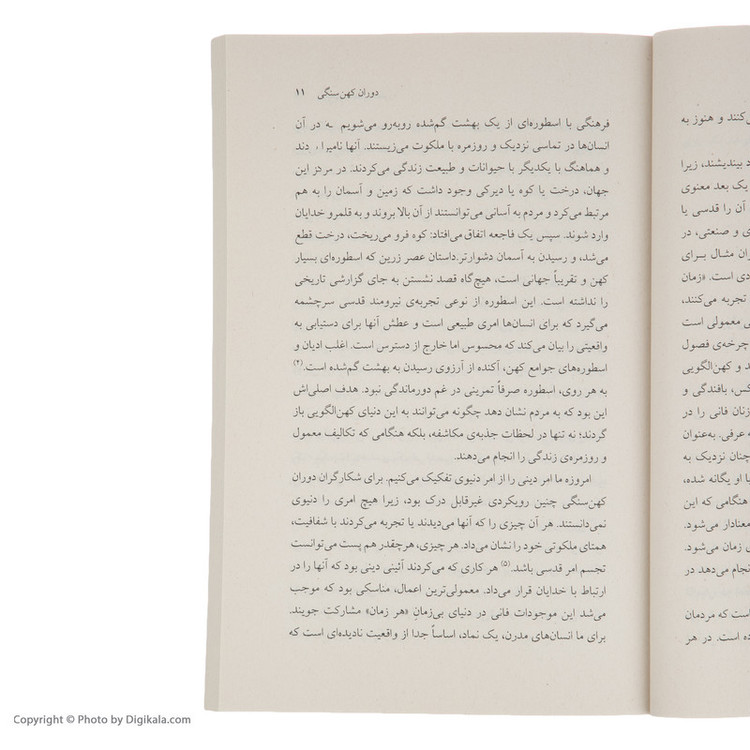 دوران کهن‌سنگی ۱۱
فرهنگی با اسطوره‌ای از یک بهشت گم‌شده روبه‌رو می‌شویم در آن
انسان‌ها در تماسی نزدیک و روزمره با ملکوت می‌زیستند. آنها
و هماهنگ با یکدیگر با حیوانات و طبیعت زندگی می‌کردند. در مرکز این
جهان، درخت یا کوه یا دیرکی وجود داشت که زمین و آسمان را به هم
مرتبط می‌کرد و مردم به آسانی می‌توانستند از آن بالا بروند و به قلمرو خدایان
وارد شوند. سپس یک فاجعه اتفاق می‌افتاد: کوه فرو می‌ریخت، درخت قطع
می‌شد، و رسیدن به آسمان دشوارتر.داستان عصر زرین که اسطوره‌ای بسیار
کهن و تقریباً جهانی است، هیچ‌گاه قصد نشستن به جای گزارشی تاریخی
را نداشته است. این اسطوره از نوعی تجربه‌ی نیرومند قدسی سرچشمه
می‌گیرد که برای انسان‌ها امری طبیعی است و عطش آنها برای دستیابی به
واقعیتی را بیان می‌کند که محسوس اما خارج از دسترس است. اغلب ادیان و
اسطوره‌های جوامع کهن، آکنده از آرزوی رسیدن به بهشت گم‌شده است.(۴)
به هر روی، اسطوره صرفاً تمرینی در غم دورماندگی نبود. هدف اصلی‌اش
این بود که به مردم نشان دهد چگونه می‌توانند به این دنیای کهن‌الگویی باز
گردند؛ نه تنها در لحظات جذبه‌ی مکاشفه، بلکه هنگامی که تکالیف معمول
و روزمره‌ی زندگی را انجام می‌دهند.
امروزه ما امر دینی را از امر دنیوی تفکیک می‌کنیم. برای شکارگران دوران
کهن‌سنگی چنین رویکردی غیرقابل درک بود، زیرا هیچ امری را دنیوی
نمی‌دانستند. هر آن چیزی را که آنها می‌دیدند یا تجربه می‌کردند با شفافیت،
همتای ملکوتی خود را نشان می‌داد. هر چیزی، هرچقدر هم پست می‌توانست
تجسم امر قدسی باشد.(۵) هر کاری که می‌کردند آئینی دینی بود که آنها را در
ارتباط با خدایان قرار می‌داد. معمولی‌ترین اعمال، مناسکی بود که موجب
می‌شد این موجودات فانی در دنیای بی‌زمانِ «هر زمان» مشارکت جویند.
برای ما انسان‌های مدرن، یک نماد، اساساً جدا از واقعیت نادیده‌ای است که
می‌کنند و هنوز به
بیندیشند، زیرا
یک بعد معنوی
آن را قدسی یا
ی و صنعتی، در
مثال برای
است. «زمان
تجربه می‌کنند،
معمولی است
چرخه‌ی فصول
و کهن‌الگویی
بافندگی و
زنان فانی را در
عرفی. به‌عنوان
چنان نزدیک به
با او یگانه شده،
هنگامی که این
معنادار می‌شود.
زمان می‌شود.
انجام می‌دهد در
است که مردمان
است. در هر
Copyright © Photo by Digikala.com